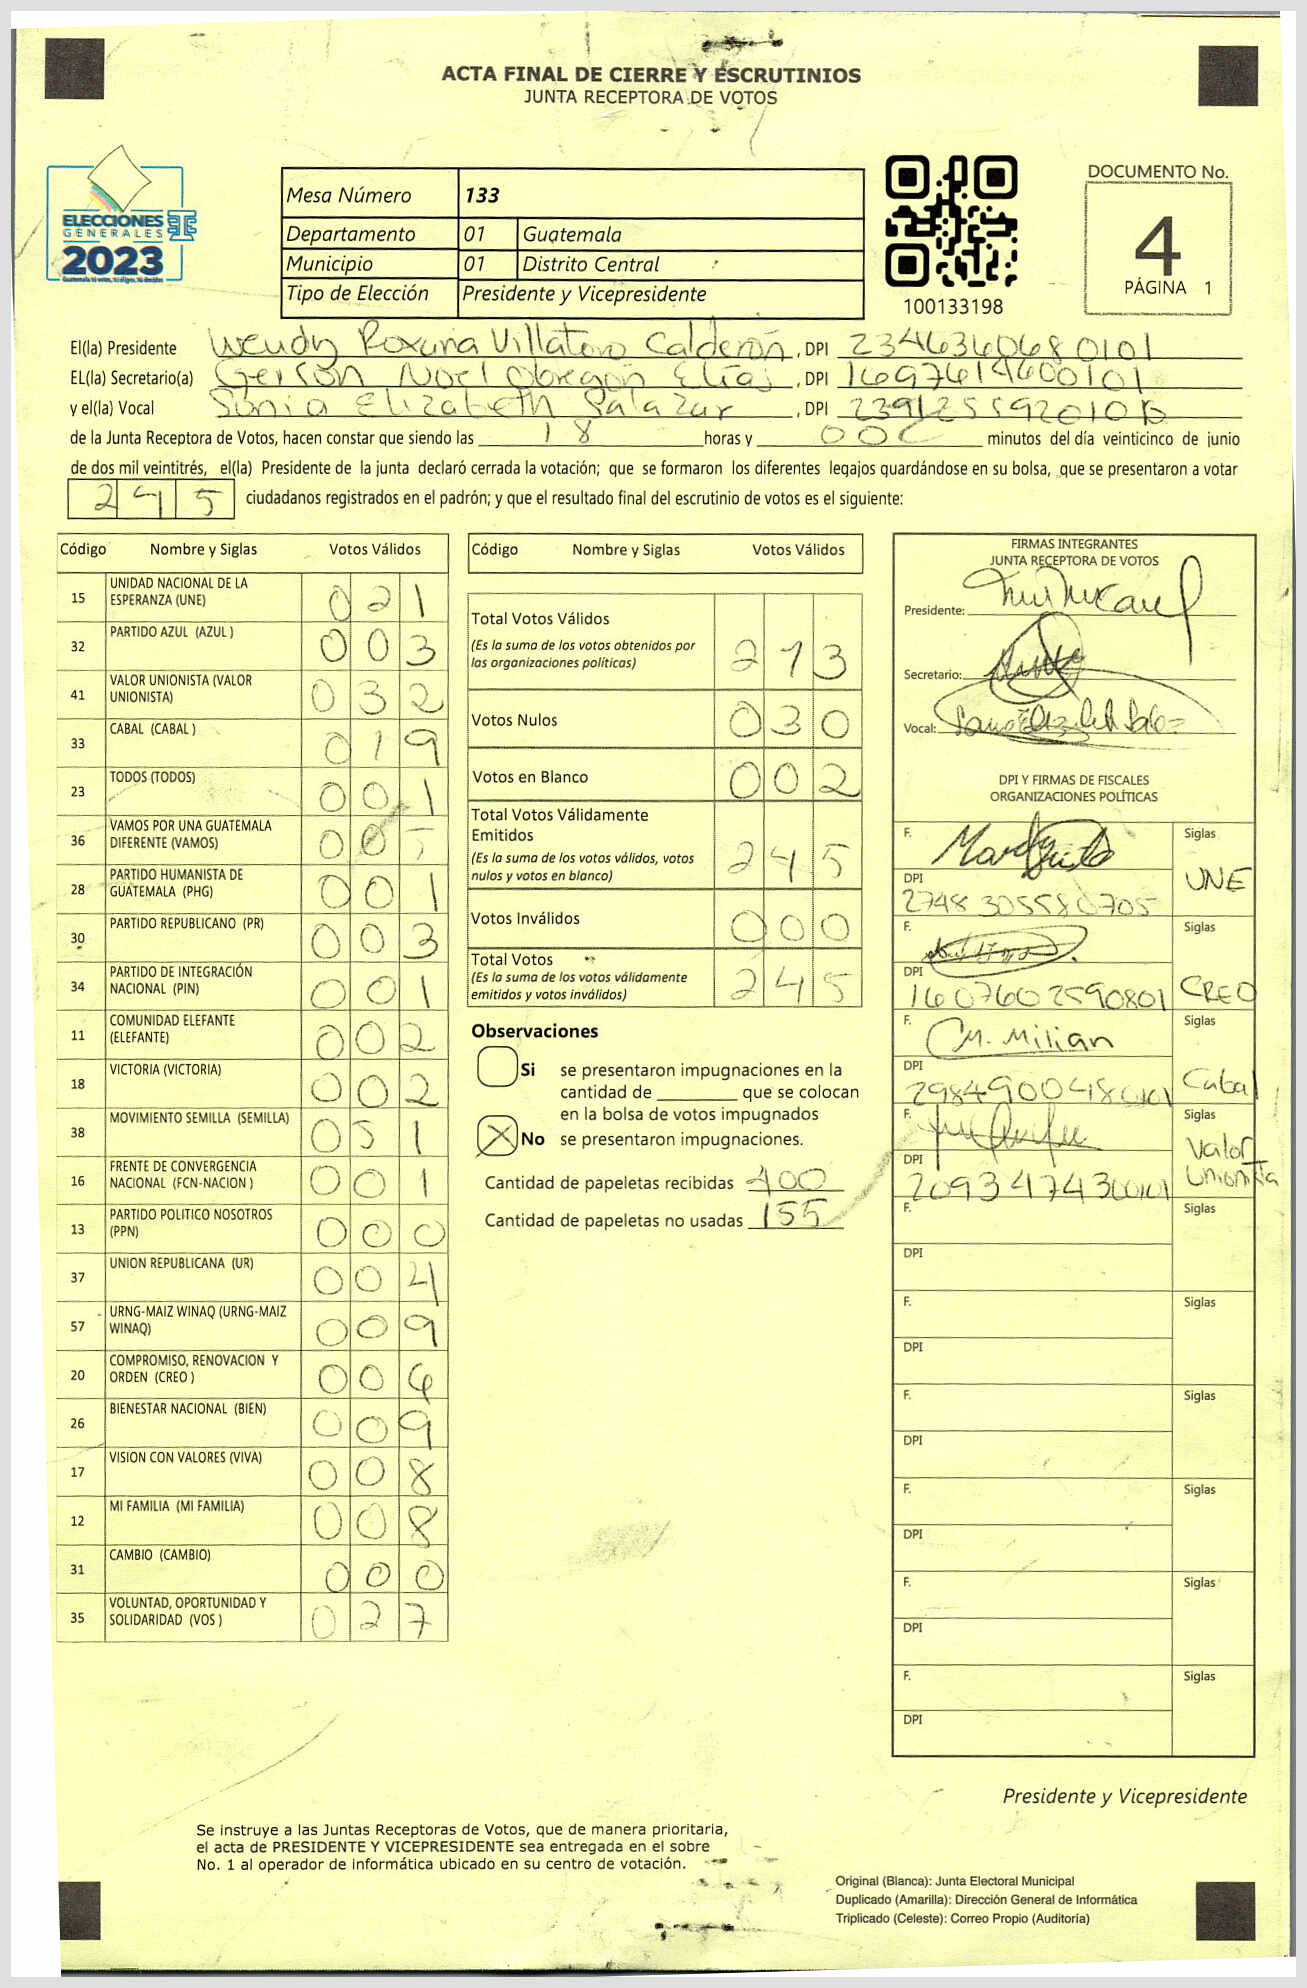 ACTA FINAL DE CIERRE Y ESCRUTINIOS
JUNTA RECEPTORA DE VOTOS
ELECCIONES
GENERALES
2023
Mesa Número 133
Departamento 01 Guatemala
Municipio 01 Distrito Central
Tipo de Elección Presidente y Vicepresidente
100133198
DOCUMENTO No.
4
PÁGINA 1
El(la) Presidente Wendy Roxana Villatoro Calderón, DPI 2346360680101
EL(la) Secretario(a) Gerson Noel Obregón Elías, DPI 1697614600101
y el(la) Vocal Sonia Elizabeth Salazar, DPI
de la Junta Receptora de Votos, hacen constar que siendo las 18 horas y 00 minutos del día veinticinco de junio
de dos mil veintitrés, el(la) Presidente de la junta declaró cerrada la votación; que se formaron los diferentes legajos guardándose en su bolsa, que se presentaron a votar
245 ciudadanos registrados en el padrón; y que el resultado final del escrutinio de votos es el siguiente:
Código Nombre y Siglas Votos Válidos
15 UNIDAD NACIONAL DE LA ESPERANZA (UNE) 021
32 PARTIDO AZUL (AZUL ) 003
41 VALOR UNIONISTA (VALOR UNIONISTA) 032
33 CABAL (CABAL ) 019
23 TODOS (TODOS) 001
36 VAMOS POR UNA GUATEMALA DIFERENTE (VAMOS) 005
28 PARTIDO HUMANISTA DE GUATEMALA (PHG) 001
30 PARTIDO REPUBLICANO (PR) 003
34 PARTIDO DE INTEGRACIÓN NACIONAL (PIN) 001
11 COMUNIDAD ELEFANTE (ELEFANTE) 002
18 VICTORIA (VICTORIA) 002
38 MOVIMIENTO SEMILLA (SEMILLA) 051
16 FRENTE DE CONVERGENCIA NACIONAL (FCN-NACION ) 001
13 PARTIDO POLITICO NOSOTROS (PPN) 000
37 UNION REPUBLICANA (UR) 004
57 URNG-MAIZ WINAQ (URNG-MAIZ WINAQ) 009
20 COMPROMISO, RENOVACION Y ORDEN (CREO ) 006
26 BIENESTAR NACIONAL (BIEN) 009
17 VISION CON VALORES (VIVA) 008
12 MI FAMILIA (MI FAMILIA) 008
31 CAMBIO (CAMBIO) 000
35 VOLUNTAD, OPORTUNIDAD Y SOLIDARIDAD (VOS ) 027
Código Nombre y Siglas Votos Válidos
Total Votos Válidos 213
(Es la suma de los votos obtenidos por
las organizaciones políticas)
Votos Nulos 030
Votos en Blanco 002
Total Votos Válidamente
Emitidos 245
(Es la suma de los votos válidos, votos
nulos y votos en blanco)
Votos Inválidos 000
Total Votos 245
(Es la suma de los votos válidamente
emitidos y votos inválidos)
Observaciones
Si se presentaron impugnaciones en la
cantidad de ________ que se colocan
en la bolsa de votos impugnados
X No se presentaron impugnaciones.
Cantidad de papeletas recibidas 400
Cantidad de papeletas no usadas 155
FIRMAS INTEGRANTES
JUNTA RECEPTORA DE VOTOS
Presidente:
Secretario:
Vocal:
DPI Y FIRMAS DE FISCALES
ORGANIZACIONES POLÍTICAS
F. Siglas
UNE
DPI
2748 305580705
F. Siglas
DPI
1607602590801 CREO
F. M. Milian Siglas
DPI
2984900480101 Cabal
F. Siglas
Valor
DPI
2093474300101 Unionista
F. Siglas
DPI
F. Siglas
DPI
F. Siglas
DPI
F. Siglas
DPI
F. Siglas
DPI
F. Siglas
DPI
Presidente y Vicepresidente
Se instruye a las Juntas Receptoras de Votos, que de manera prioritaria,
el acta de PRESIDENTE Y VICEPRESIDENTE sea entregada en el sobre
No. 1 al operador de informática ubicado en su centro de votación.
Original (Blanca): Junta Electoral Municipal
Duplicado (Amarilla): Dirección General de Informática
Triplicado (Celeste): Correo Propio (Auditoría)